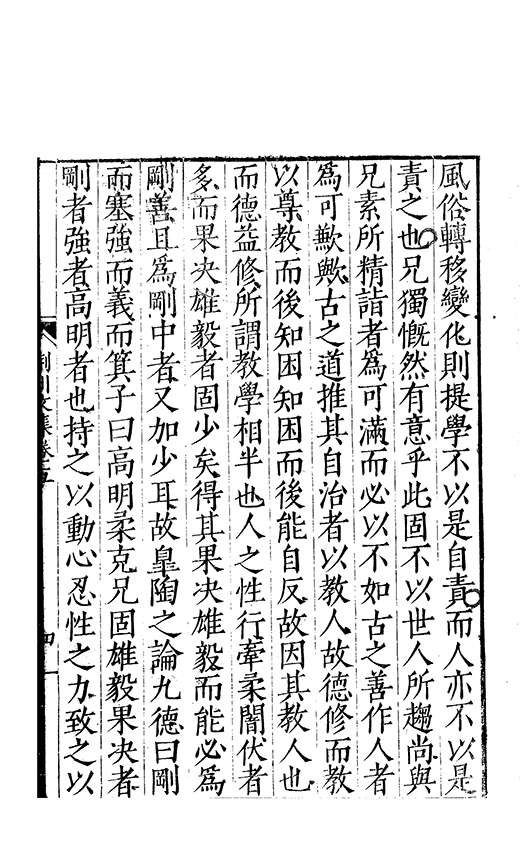 風俗轉移變化則提學不以是自責而人亦不以是
責之也兄獨慨然有意乎此固不以世人所趨尚與
兄素所精詣者為可滿而必以不如古之善作人者
為可歉歟古之道推其自治者以教人故德修而教
以尊教而後知困知困而後能自反故因其教人也
而德益修所謂教學相半也人之性行牽柔闇伏者
多而果决雄毅者固少矣得其果决雄毅而能必為
剛善且為剛中者又加少耳故皐陶之論九德曰剛
而塞強而義而箕子曰高明柔克兄固雄毅果决者
剛者強者高明者也持之以動心忍性之力致之以
荆川文集卷五
四